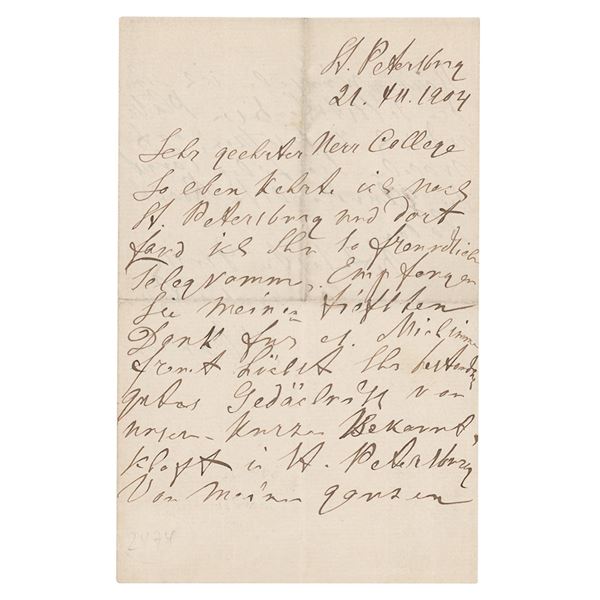 St. Petersburg
21. XII. 1904
Sehr geehrter Herr College
So eben kehrte ich nach
St. Petersburg und dort
fand ich Ihr so freundlich
Telegramm. Empfangen
Sie meinen tiefsten
Dank fur es. Mich immer
freut höchst Ihr beständig
gutes Gedächtniss von
unsern kurzen Bekannt
schaft in St. Petersburg
Von meinen ganzen
2474